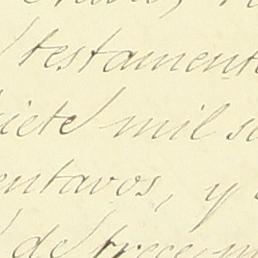 testament
siete mil s
entavos, y
de trece m